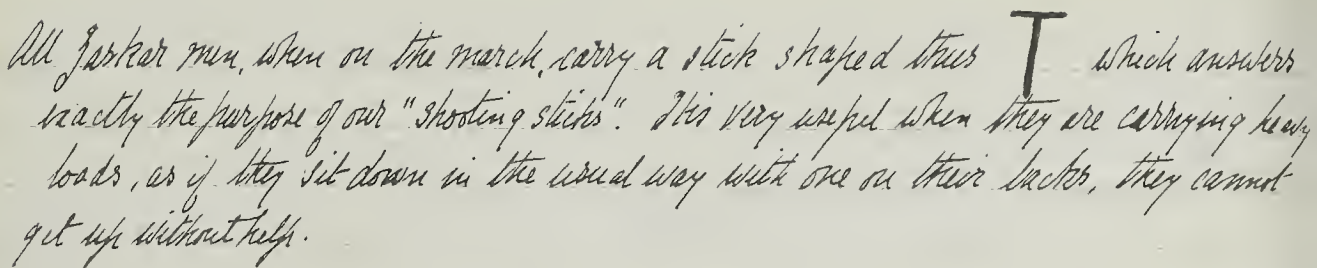 All Zaskar men, when on the march, carry a stick shaped thus T which answers
exactly the purpose of our "shooting sticks". It is very useful when they are carrying heavy
loads, as if they sit down in the usual way with one on their backs, they cannot
get up without help.